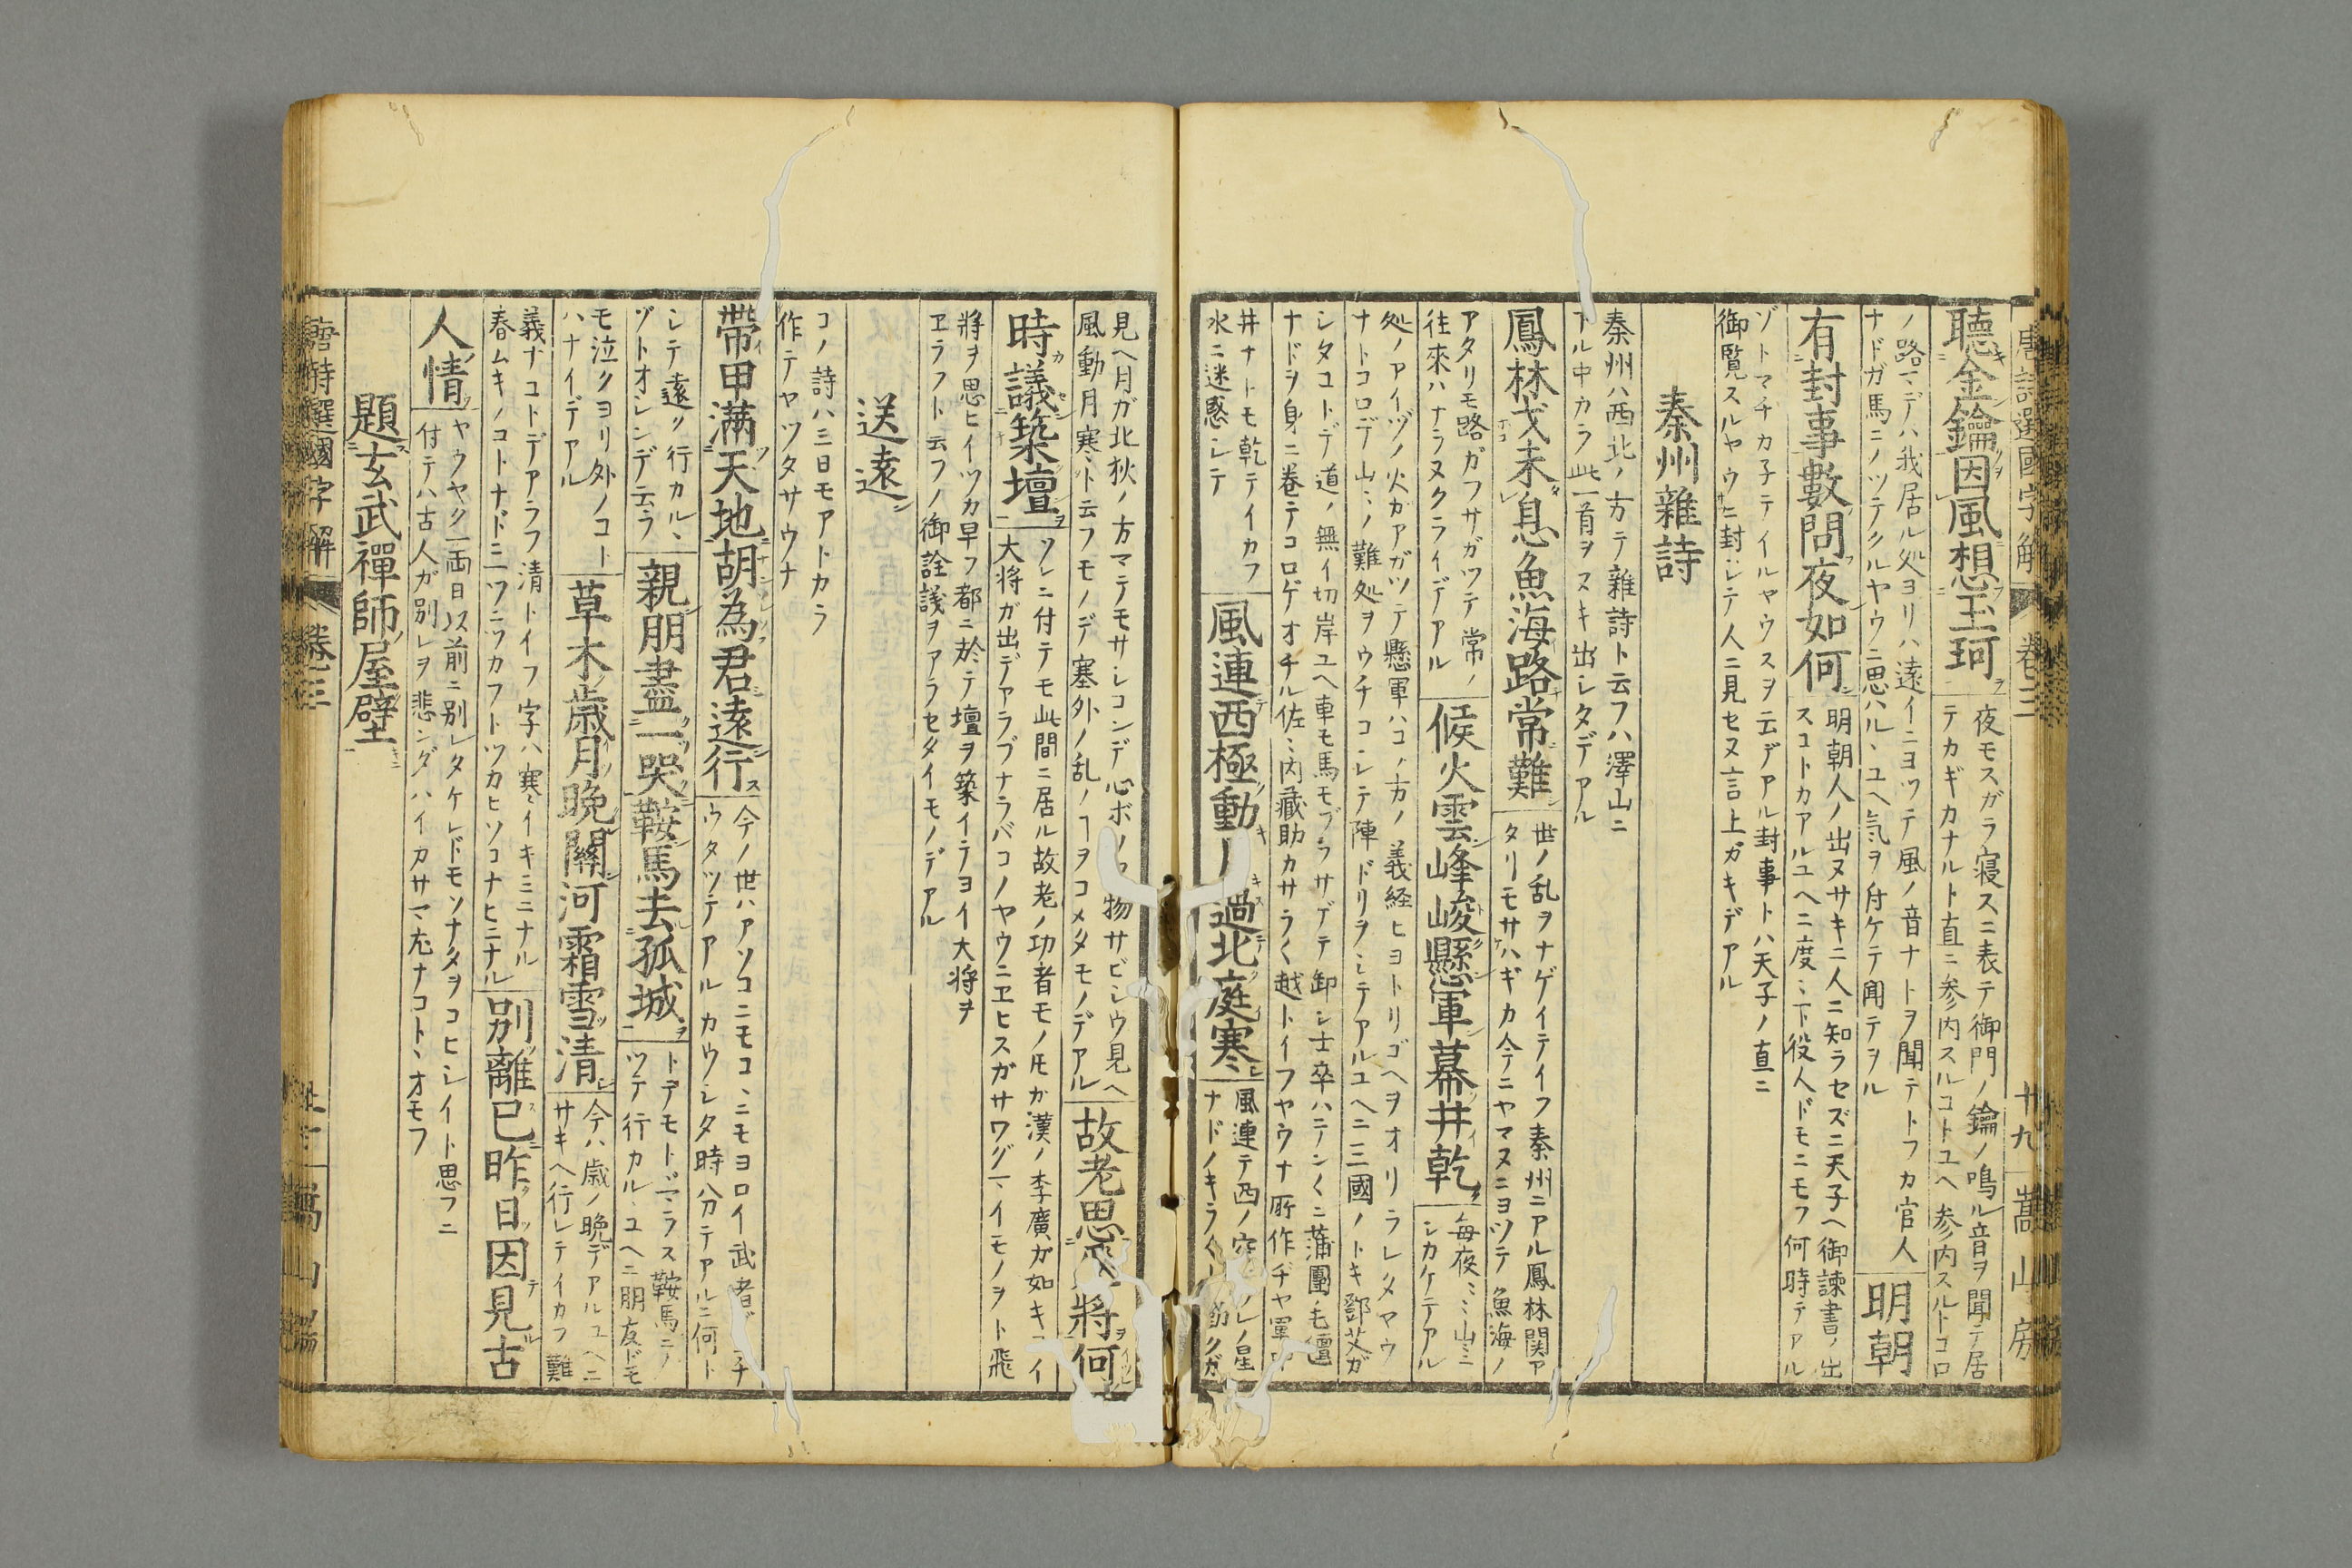 唐詩選國字解 卷三 十九 嵩山房
聽金鑰因風想玉珂
夜モスガラ寝スニ表テ御門ノ鑰ノ鳴ル音ヲ聞テ居
テカギカナルト直ニ参内スルコトユヘ参内スルトコロ
ノ路マデハ我居ル処ヨリハ遠イニヨツテ風ノ音ナトヲ聞テトフカ官人
ナドガ馬ニノツテクルヤウニ思ハルヽユヘ気ヲ付ケテ聞テヲル
明朝
有封事數問夜如何
明朝人ノ出ヌサキニ人ニ知ラセズニ天子ヘ御諫書ノ出
スコトカアルユヘニ度〻下役人ドモニモフ何時テアル
ゾトマチカ子テイルヤウスヲ云デアル封事ト八天子ノ直ニ
御覧スルヤウニ封シテ人ニ見セヌ言上ガキデアル
秦州雜詩
秦州ハ西北ノ方テ雜詩ト云フハ澤山ニ
アル中カラ此一首ヲヌキ出シタデアル
鳳林戈未息魚海路常難
世ノ乱ヲナゲイテイフ秦州ニアル鳳林関ア
タリモサハギカ今ニヤマヌニヨツテ魚海ノ
アタリモ路ガフサガツテ常ノ
往來ハナラヌクライデアル
候火雲峰峻懸軍幕井乾
毎夜〻〻山〻ニ
シカケテアル
処ノアイヅノ火カアガツテ懸軍ハコノ方ノ義経ヒヨトリゴヘヲオリラレタヤウ
ナトコロデ山〻ノ難処ヲウチコシテ陣ドリヲシテアルユヘニ三國ノトキ鄧艾ガ
シタコトデ道ノ無イ切岸ユヘ車モ馬モブラサゲテ卸シ士卒ハテンくニ蒲團毛氈
ナドヲ身ニ巻テコロゲオチル佐〻内藏助カサラく越トイフヤウナ所作ヂヤ軍
井ナトモ乾テイカフ
水ニ迷惑シテ
風連西極動 過北庭寒
風連テ西ノ ノ星
ナドノキラく
見ヘ月ガ北狄ノ方マテモサシコンデ心ボソ 物サビシウ見ヘ
風動月寒ト云フモノデ塞外ノ乱ノヿヲコメタモノデアル
故老思 將何
時議築壇
ソレニ付テモ此間ニ居ル故老ノ功者モノ𪜈カ漢ノ李廣ガ如キ イ
大将ガ出デアラブナラバコノヤウニヱヒスガサワグマイモノヲト飛
將ヲ思ヒイツカ早フ都ニ於テ壇ヲ築イテヨイ大将ヲ
ヱラフト云フノ御詮議ヲアラセタイモノデアル
送遠
コノ詩ハ三日モアトカラ
作テヤツタサウナ
帶甲滿天地胡為君遠行
今ノ世ハアソコニモコヽニモヨロイ武者
ウタツテアルカウシタ時分テアルニ何ト
シテ遠ク行カルヽ
ゾトオシンデ云ラ
親朋盡一哭鞍馬去孤城
トデモトヾマラス鞍馬ニノ
ツテ行カルヽユヘニ朋友ドモ
モ泣クヨリ外ノコト
ハナイデアル
草木歳月晩關河霜雪清
今ハ歳ノ晩デアルユヘニ
サキヘ行レテイカフ難
義ナコトデアラフ清トイフ字ハ寒イキミニナル
春ムキノコトナドニツニツカフトツカヒソコナヒニナル
別離已昨日因見古
人情
ヤウヤク一両日以前ニ別レタケレドモソナタヲコヒシイト思フニ
付テハ古人ガ別レヲ悲シダハイカサマ尤ナコトヽオモフ
題玄武禪師屋壁
唐詩選國字解 卷三